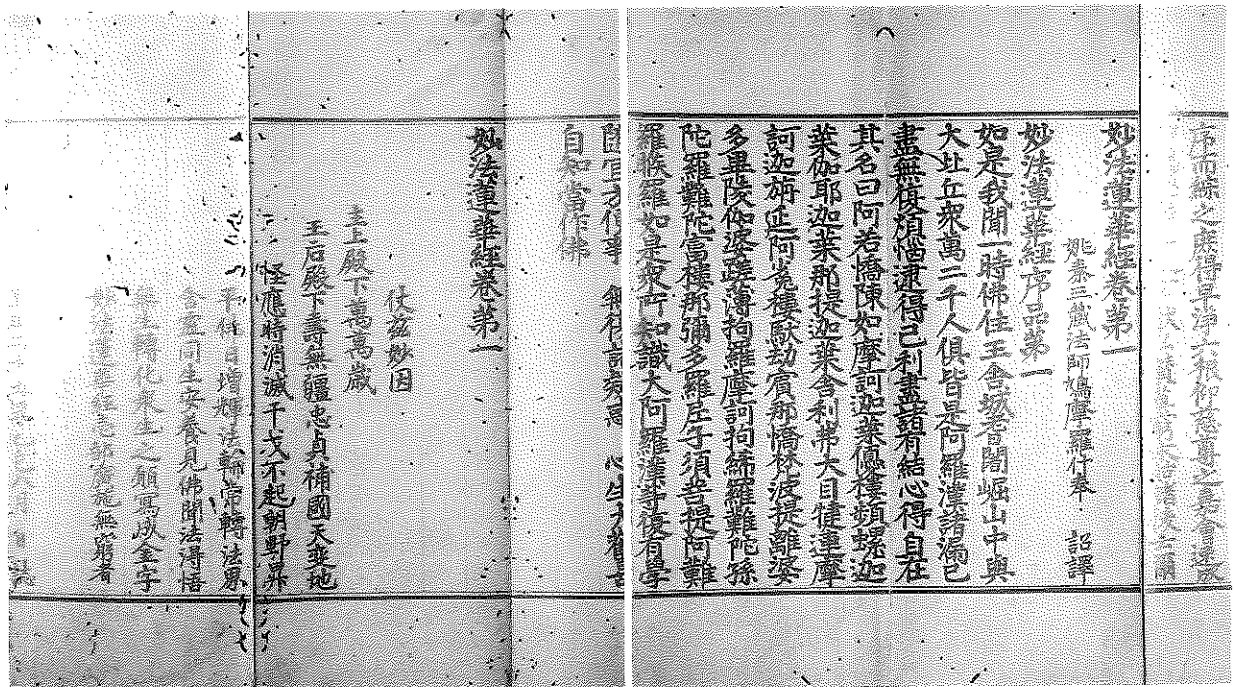 序而綜之庶得早淨六根仰慈尊之嘉會速成
妙法蓮華經卷第一
姚秦三藏法師鳩摩羅什奉 詔譯
妙法蓮華經序品第一
如是我聞一時佛住王舍城耆闍崛山中與
大比丘衆萬二千人俱皆是阿羅漢諸漏已
盡無復煩惱逮得己利盡諸有結心得自在
其名曰阿若憍陳如摩訶迦葉優樓頻螺迦
葉伽耶迦葉那提迦葉舍利弗大目犍連摩
訶迦旃延阿㝹樓馱劫賓那憍梵波提離婆
多畢陵伽婆蹉薄拘羅摩訶拘絺羅難陀孫
陀羅難陀富樓那彌多羅尼子須菩提阿難
羅睺羅如是衆所知識大阿羅漢等復有學
隨宜方便事 無復諸疑惑 心生大歡喜
自知當作佛
妙法蓮華經卷第一
仗玆妙因
主上殿下萬萬歲
王后殿下壽無疆忠貞補國天變地
怪應時消滅干戈不起朝野昇
平佛日增輝法輪常轉法界
含靈同生安養見佛聞法得悟
無生轉化衆生之願寫成金字
妙法蓮華經 施無窮者